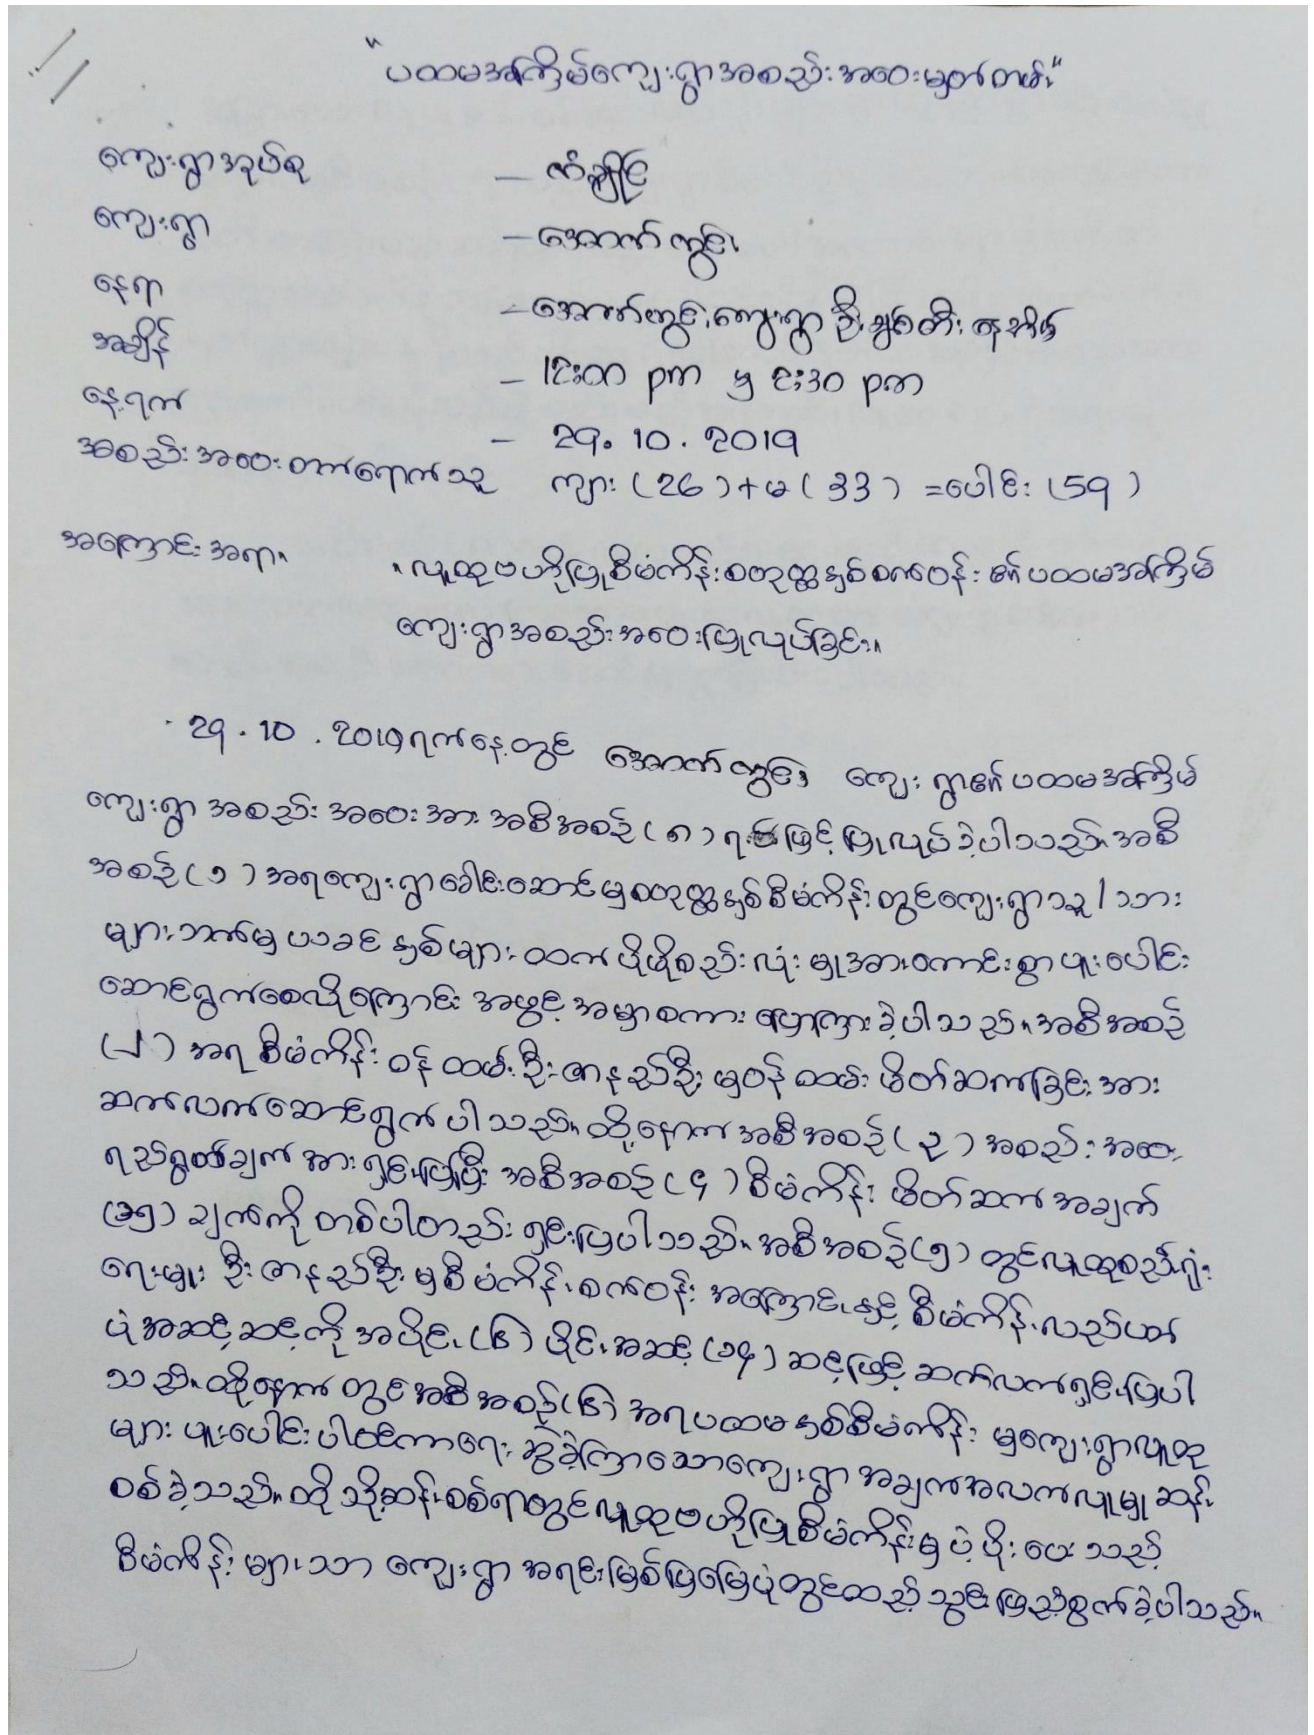 "ပထမအကြိမ်ကျေးရွာအစည်းအဝေးမှတ်တမ်း"
ကျေးရွာအုပ်စု – ကံချိုင်
ကျေးရွာ – အောက်ကွင်း
နေရာ – အောက်ကွင်းကျေးရွာ ဦးချစ်တီး နေအိမ်
အချိန် – 12:00 pm မှ 2:30 pm
နေ့ရက် – 29.10.2019
အစည်းအဝေးတက်ရောက်သူ ကျား (26) + မ (33) = ပေါင်း (59)
အကြောင်းအရာ။ "လူထုဗဟိုပြုစီမံကိန်းစတုတ္ထနှစ်စက်ဝန်း၏ပထမအကြိမ်
ကျေးရွာအစည်းအဝေးပြုလုပ်ခြင်း။
29.10.2019ရက်နေ့တွင် အောက်ကွင်း ကျေးရွာ၏ပထမအကြိမ်
ကျေးရွာအစည်းအဝေးအား အစီအစဉ်(၈)ရပ်ဖြင့်ပြုလုပ်ခဲ့ပါသည်။အစီ
အစဉ်(၁)အရကျေးရွာခေါင်းဆောင်မှစတုတ္ထနှစ်စီမံကိန်းတွင်ကျေးရွာသူ/သား
များဘက်မှယခင်နှစ်များထက်ပိုမိုစည်းလုံးမှုအားကောင်းစွာပူးပေါင်း
ဆောင်ရွက်စေလိုကြောင်း အဖွင့်အမှာစကားပြောကြားခဲ့ပါသည်။အစီအစဉ်
(၂)အရစီမံကိန်းဝန်ထမ်းဦးဇာနည်ဦးမှဝန်ထမ်းမိတ်ဆက်ခြင်းအား
ဆက်လက်ဆောင်ရွက်ပါသည်။ထို့နောက်အစီအစဉ်(၃)အစည်းအဝေး
ရည်ရွယ်ချက်အားရှင်းပြပြီး အစီအစဉ်(၄)စီမံကိန်းမိတ်ဆက်အချက်
(၁၅)ချက်ကိုတစ်ပါတည်းရှင်းပြပါသည်။အစီအစဉ်(၅)တွင်လူထုစည်းရုံး
ရေးမှူး ဦးဇာနည်ဦးမှစီမံကိန်းစက်ဝန်းအကြောင်းနှင့် စီမံကိန်းလည်ပတ်
ပုံအဆင့်ဆင့်ကိုအပိုင်း(၆)ပိုင်းအဆင့်(၁၄)ဆင့်ဖြင့်ဆက်လက်ရှင်းပြပါ
သည်။ထို့နောက်တွင်အစီအစဉ်(၆)အရပထမနှစ်စီမံကိန်းမှကျေးရွာလူထု
များပူးပေါင်းပါဝင်ကာရေးဆွဲခဲ့ကြသောကျေးရွာအချက်အလက်လူမှုဆန်း
စစ်ခဲ့သည်။ထိုသို့ဆန်းစစ်ရာတွင်လူထုဗဟိုပြုစီမံကိန်းမှပံ့ပိုးပေးသည့်
စီမံကိန်းများသာကျေးရွာအရင်းမြစ်ပြမြေပုံတွင်ထည့်သွင်းဖြည့်စွက်ခဲ့ပါသည်။